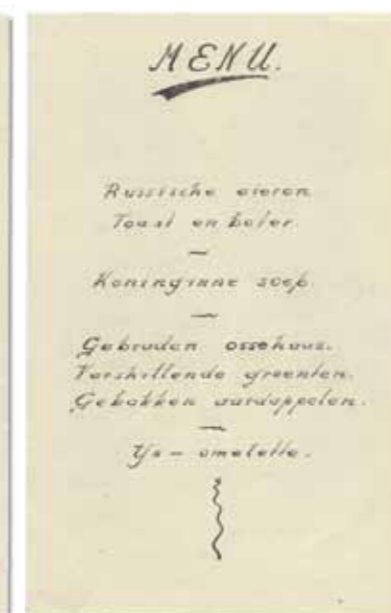 MENU.
Russische eieren
Toast en boter.
Koninginne soep.
Gebraden ossehaas.
Verskillende groenten.
Gebakken aardappelen.
Ys - omelette.